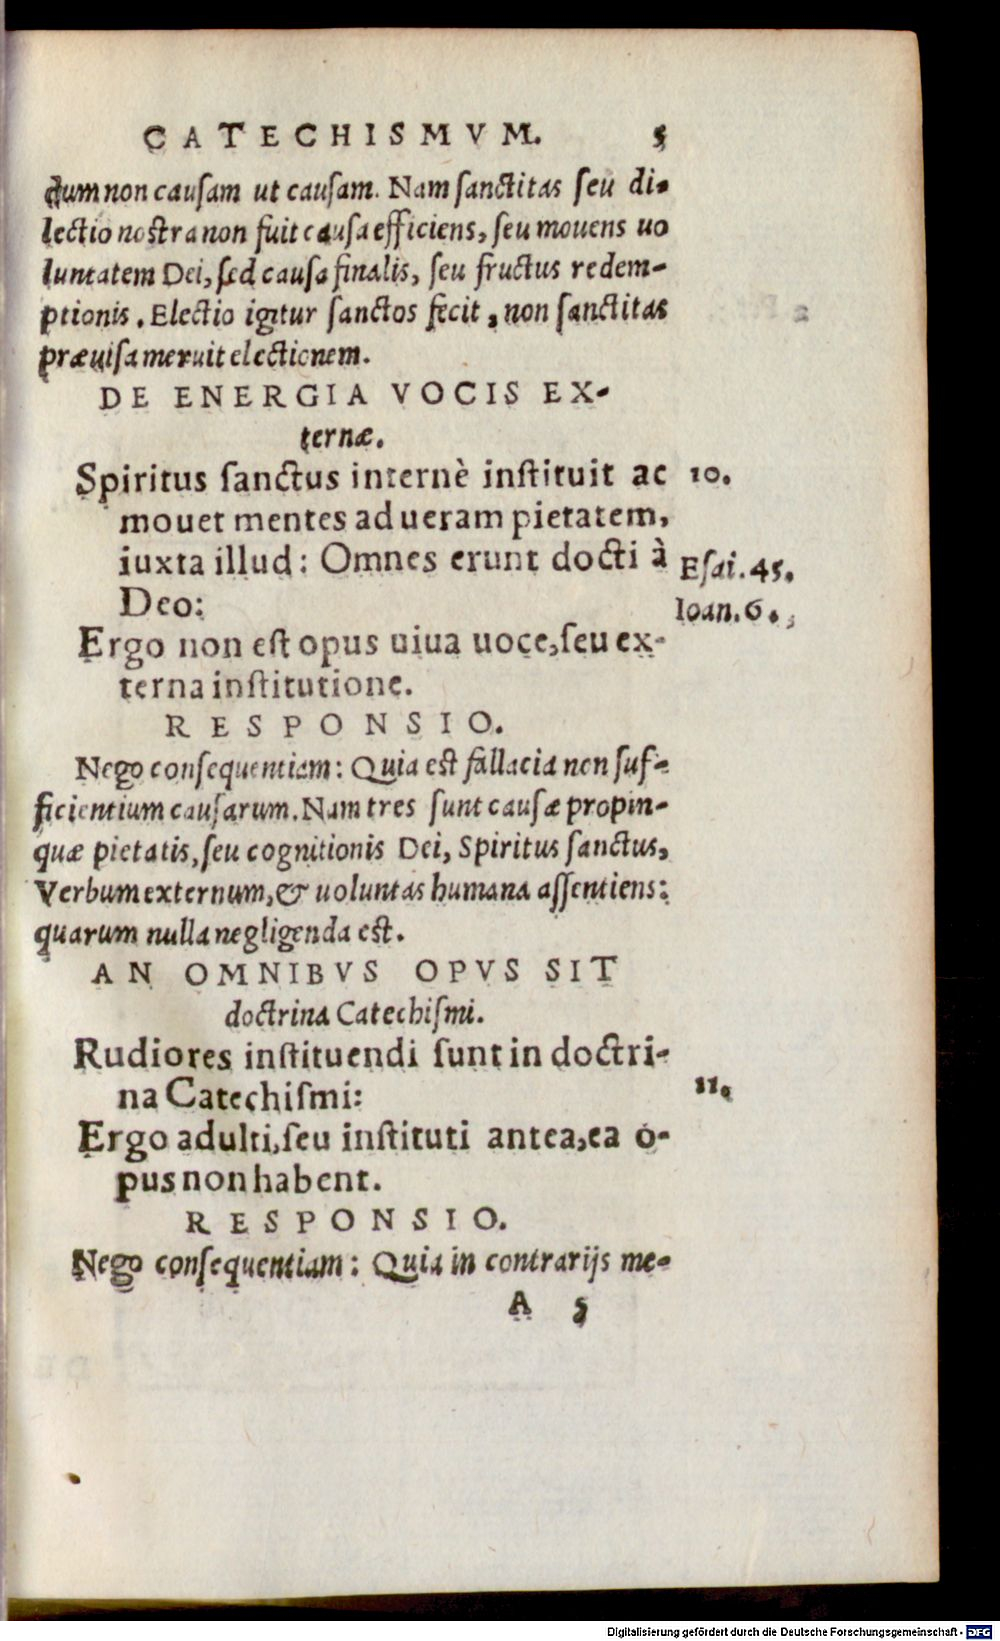 CATECHISMVM. 5
dum non causam ut causam. Nam sanctitas seu di-
lectio nostra non fuit causa efficiens, seu mouens uo
luntatem Dei, sed causa finalis, seu fructus redem-
ptionis. Electio igitur sanctos fecit, non sanctitas
præuisa meruit electionem.
DE ENERGIA VOCIS EX-
ternæ.
Spiritus sanctus internè instituit ac 10.
mouet mentes ad ueram pietatem,
iuxta illud: Omnes erunt docti à Esai. 45.
Deo: Ioan. 6.
Ergo non est opus uiua uoce, seu ex-
terna institutione.
RESPONSIO.
Nego consequentiam: Quia est fallacia non suf-
ficientium causarum. Nam tres sunt causæ propin-
quæ pietatis, seu cognitionis Dei, Spiritus sanctus,
Verbum externum, & uoluntas humana assentiens:
quarum nulla negligenda est.
AN OMNIBVS OPVS SIT
doctrina Catechismi.
Rudiores instituendi sunt in doctri-
na Catechismi: 11.
Ergo adulti, seu instituti antea, ea o-
pus non habent.
RESPONSIO.
Nego consequentiam: Quia in contrarijs me-
A 5
Digitalisierung gefördert durch die Deutsche Forschungsgemeinschaft - DFG